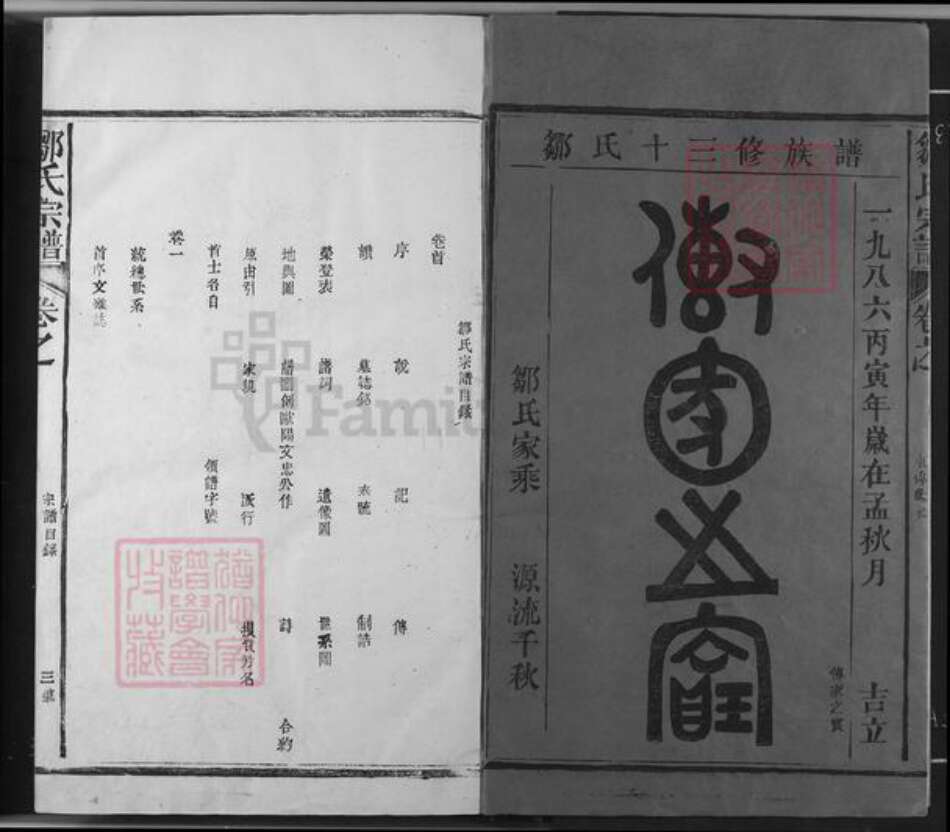 鄒氏十三修族譜
一九八六丙寅年歲在孟秋月 吉立
傳家之寶
傳家之寶
鄒氏家乘 源流千秋
鄒氏宗譜目錄
卷首
序 說 記 傳
讚 墓誌銘 制誥
榮登表 誥詞 遺像圖 世系圖
地輿圖 譜圖創歐陽文忠公作 詩 合約
原由引 家規 派行
首士名目 領譜字號
卷一
統總世系
首序文雜誌
鄒氏宗譜 卷之一
宗譜目錄
三
Family